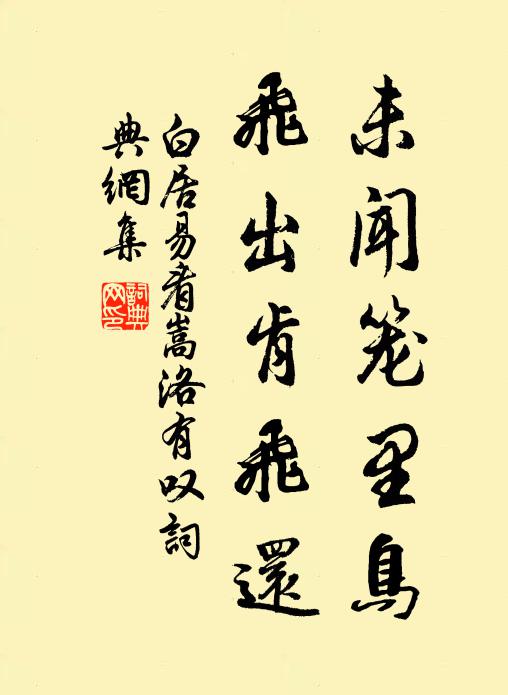 未闻笼里鸟
飛出肯飛還
白居易看嵩洛有叹詞
典網集
詞典
网印